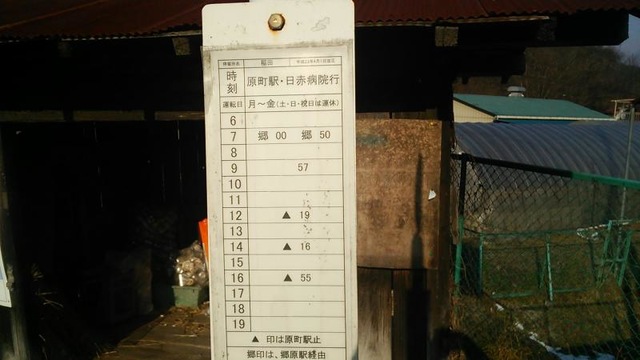 停留所名 稲田 平成22年4月1日改正
時刻 原町駅・日赤病院行
運転日 月～金(土・日・祝日は運休)
6
7 郷 00 郷 50
8
9 57
10
11
12 ▲ 19
13
14 ▲ 16
15
16 ▲ 55
17
18
19
▲ 印は原町駅止
郷印は、郷原駅経由